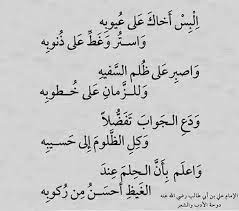 اِلْبِسْ أَخاكَ عَلى عُيوبِه
وَاستُر وَغَطِّ عَلى ذُنوبِه
وَاصبِر عَلى ظُلمِ السَفيهِ
وَلِلزَمانِ عَلى خُطوبِه
وَدَعِ الجَوابَ تَفَضُّلاً
وَكِلِ الظَلومَ إِلى حَسيبِه
وَاعلَم بِأَنَّ الحِلمَ عِندَ
الغَيظِ أَحسَنُ مِن رُكوبِه
الإمام علي بن أبي طالب رضي الله عنه
دوحة الأدب والشعر